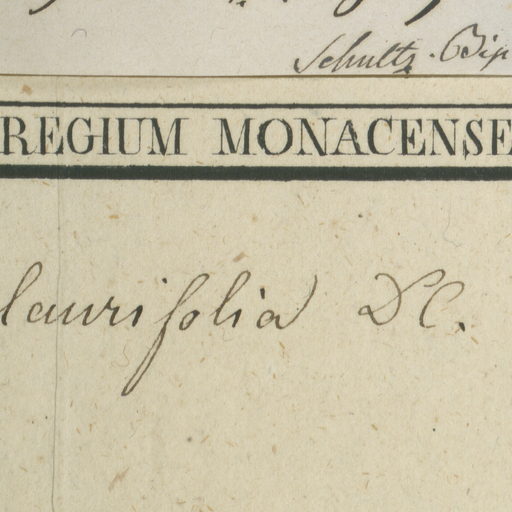 Schultz. Bip
REGIUM MONACENSE
laurifolia DC.